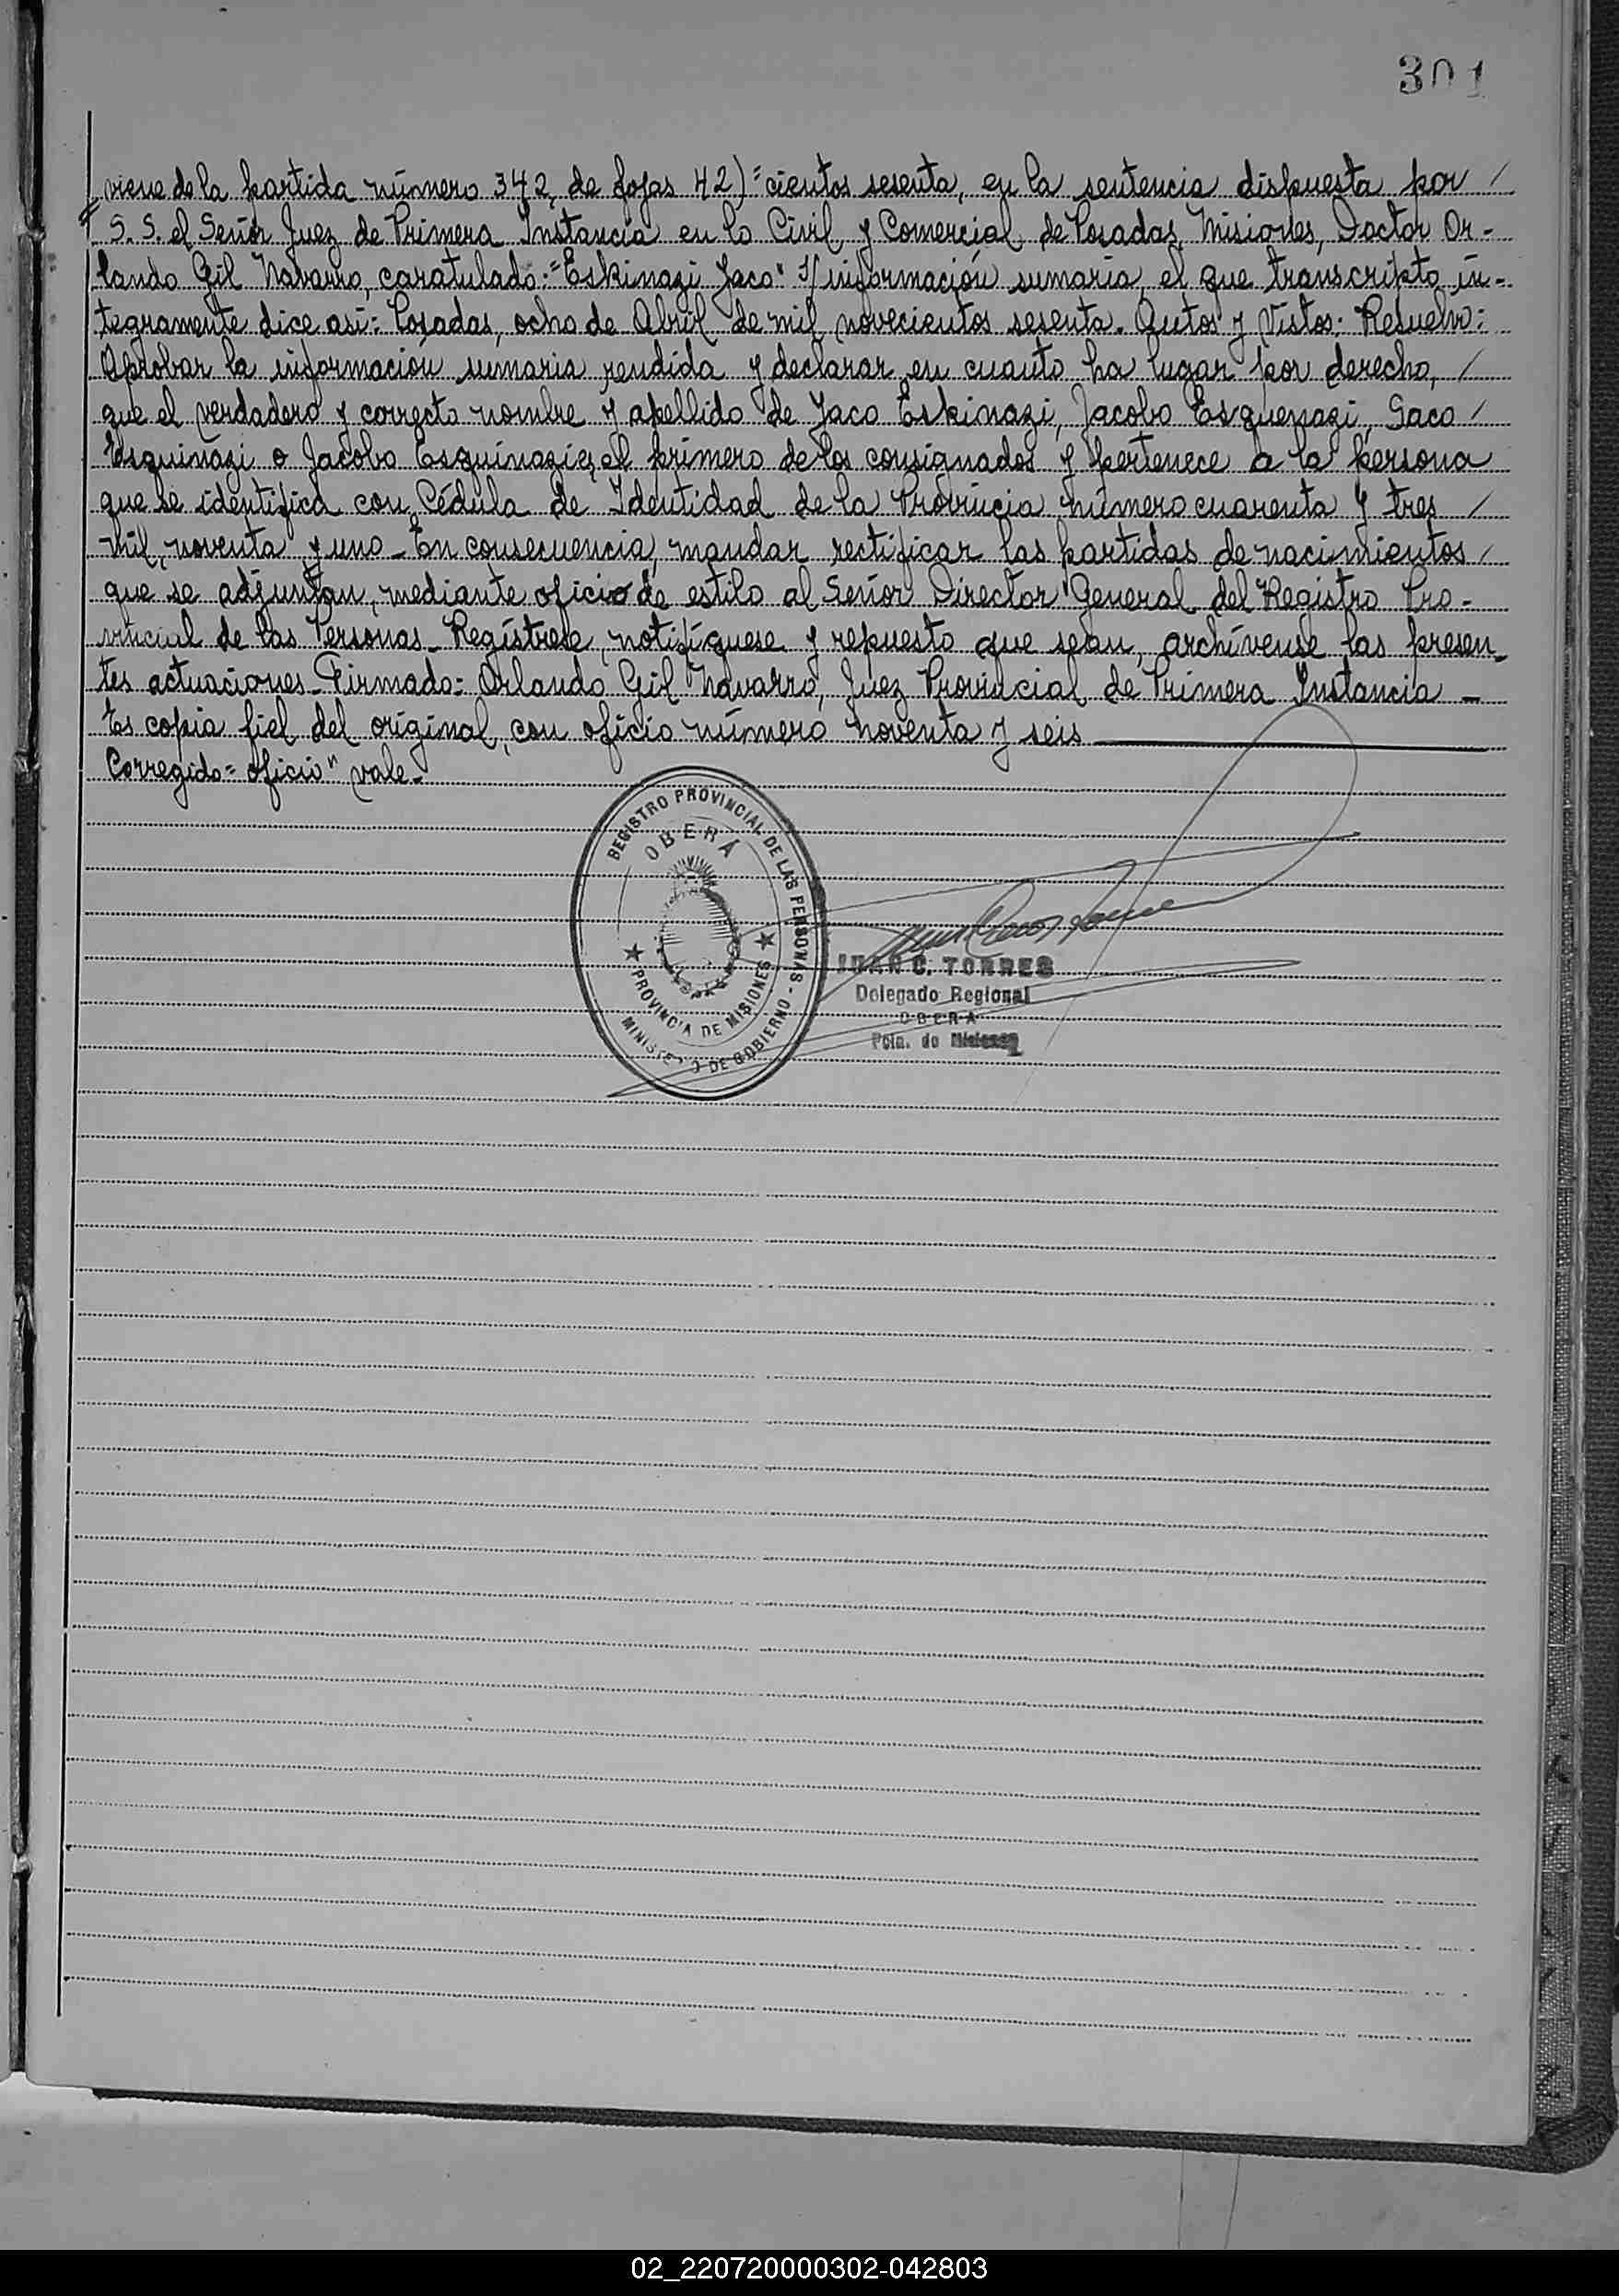 301
viene de la partida número 342, de fojas 42)=cientos sesenta, en la sentencia dispuesta por /
S. S. el Señor Juez de Primera Instancia en lo Civil y Comercial de Posadas, Misiones, Doctor Or-
lando Gil Navarro, caratulado:="Eskinazi Jaco" S/información sumaria, el que transcripto ín-
tegramente dice así: Posadas, ocho de Abril de mil novecientos sesenta. Autos y Vistos: Resuelvo:
Aprobar la información sumaria rendida y declarar en cuanto ha lugar por derecho, /
que el verdadero y correcto nombre y apellido de Jaco Eskinazi, Jacobo Esquenazi, Saco /
Esquinazi o Jacobo Esquinazi es el primero de los consignados y pertenece a la persona
que se identifica con Cédula de Identidad de la Provincia número cuarenta y tres /
mil, noventa y uno - En consecuencia, mandar rectificar las partidas de nacimientos /
que se adjuntan, mediante oficio de estilo al Señor Director General del Registro Pro-
vincial de las Personas - Regístrese, notifíquese y repuesto que sean, archívense las presen-
tes actuaciones - Firmado: Orlando Gil Navarro, Juez Provincial de Primera Instancia -
Es copia fiel del original, con oficio número noventa y seis
Corregido="oficio" vale.-
REGISTRO PROVINCIAL DE LAS PERSONAS - MINISTERIO DE GOBIERNO
OBERÁ
PROVINCIA DE MISIONES
JUAN C. TORRES
Delegado Regional
OBERA
Pcia. de Misiones
02_220720000302-042803